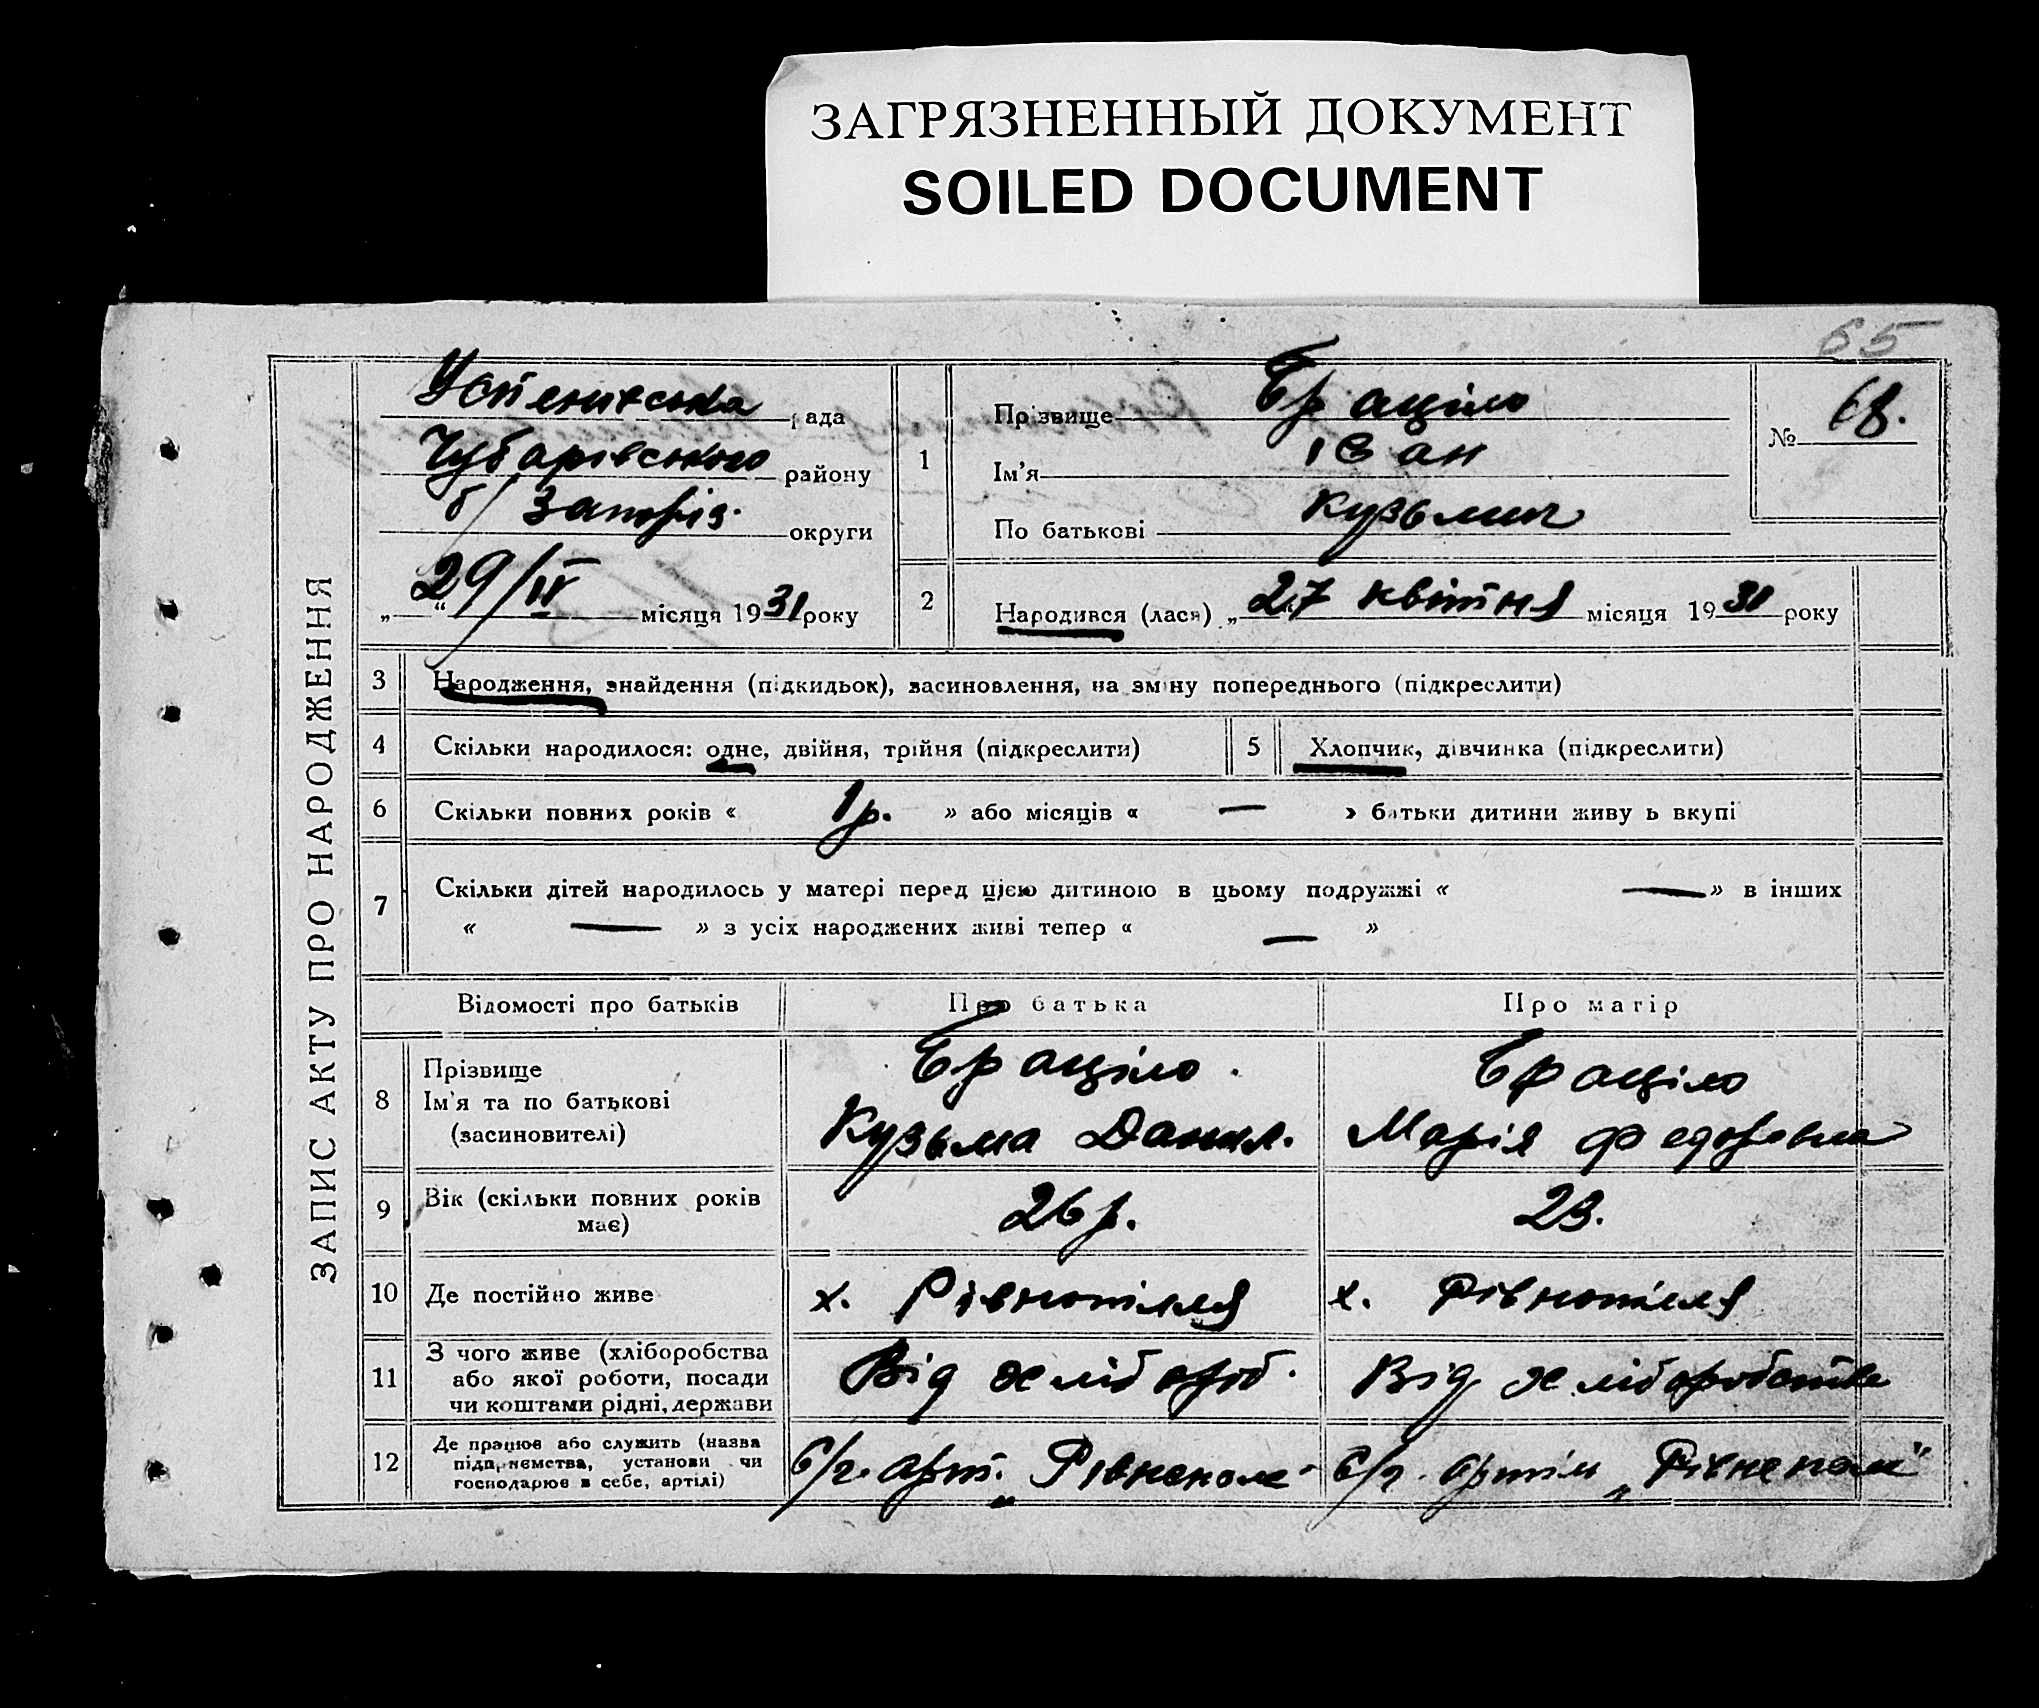 ЗАГРЯЗНЕННЫЙ ДОКУМЕНТ
SOILED DOCUMENT
65
ЗАПИС АКТУ ПРО НАРОДЖЕННЯ
Успенитська рада
Чубарівського району
б/ Запоріз. округи
29/IV місяця 1931 року
1
Прізвище Браціло
Ім'я Іван
По батькові Кузьмич
№ 68.
2 Народився (лася) „27 квітня місяця 1931 року
3 Народження, знайдення (підкидьок), засиновлення, на зміну попереднього (підкреслити)
4 Скільки народилося: одне, двійня, трійня (підкреслити)
5 Хлопчик, дівчинка (підкреслити)
6 Скільки повних років « 1 р. » або місяців « — » батьки дитини живуть вкупі
7 Скільки дітей народилось у матері перед цією дитиною в цьому подружжі « — » в інших
« — » з усіх народжених живі тепер « — »
Відомості про батьків Про батька Про матір
8 Прізвище Браціло. Браціло
Ім'я та по батькові Кузьма Данил. Марія Федоровна
(засиновителі)
9 Вік (скільки повних років має) 26 р. 23.
10 Де постійно живе х. Рівнопілля х. Рівнопілля
11 З чого живе (хліборобства
або якої роботи, посади
чи коштами рідні, держави
Від хлібороб. Від хліборобства
12 Де працює або служить (назва
підприємства, установи чи
господарює в себе, артілі)
С/г. арт. „Рівнеполе" С/г. артіли „Рівнеполе"